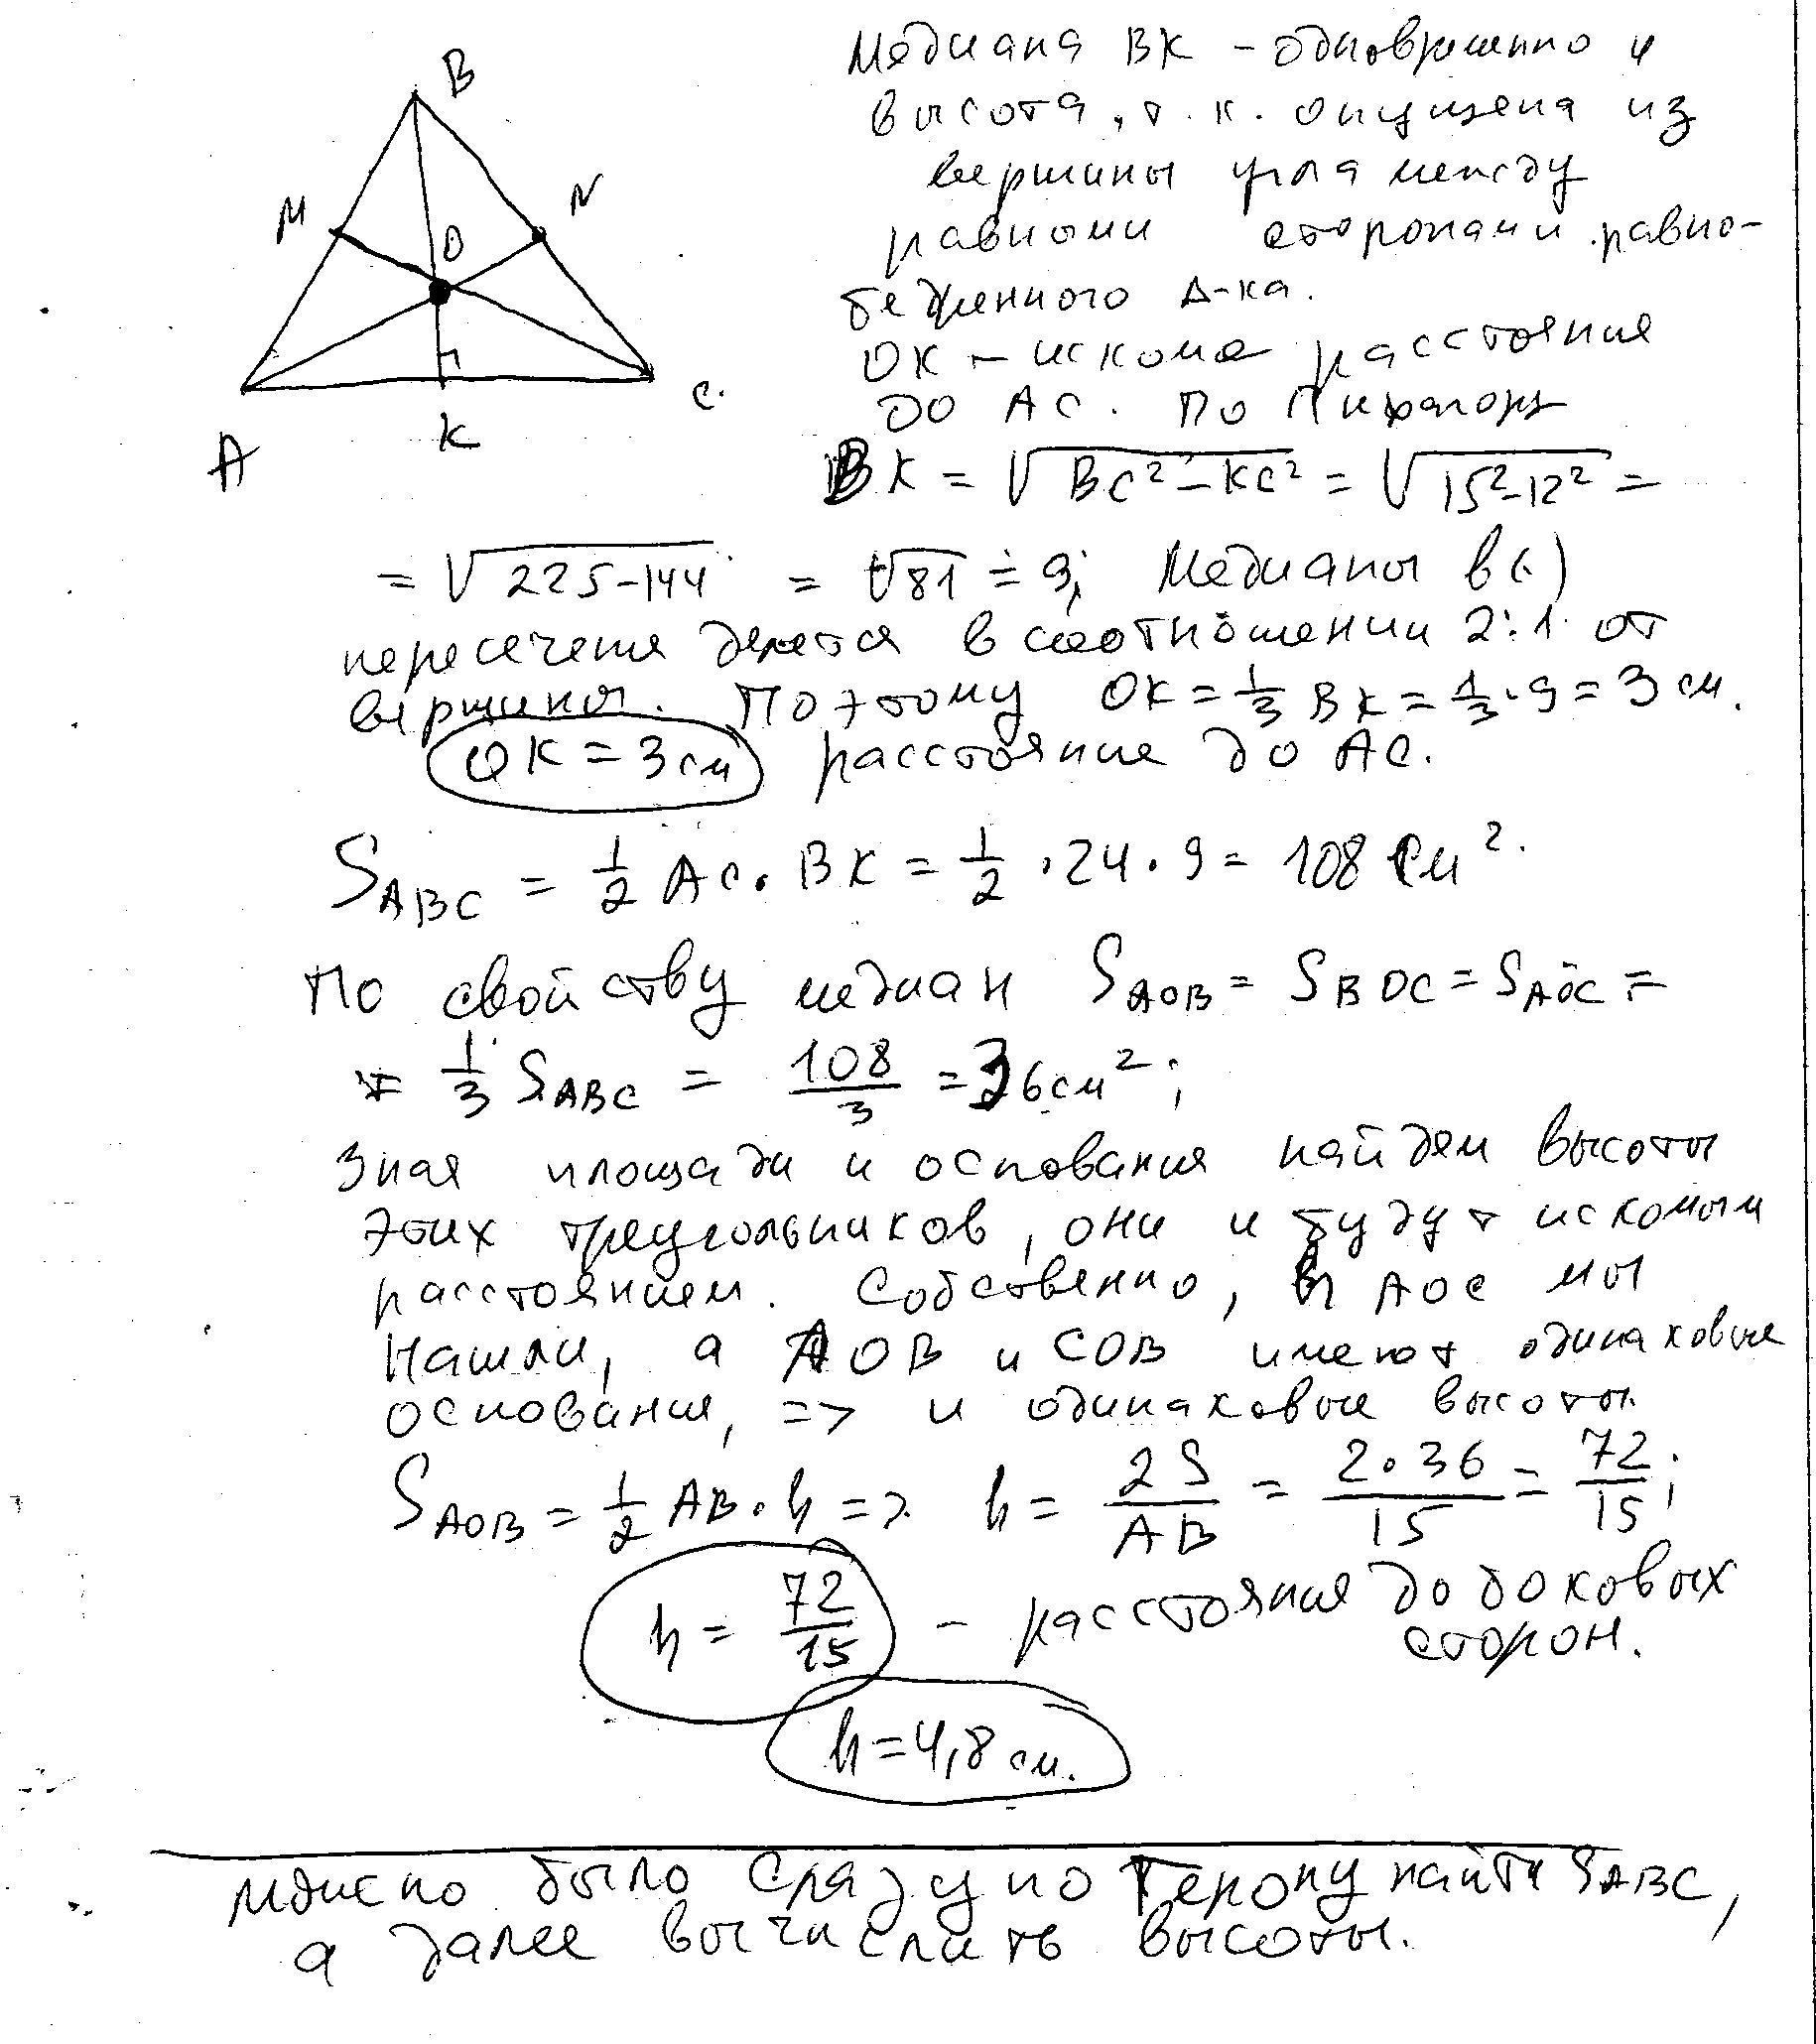 B
M
N
O
A
K
C.
Медиана BK – одновременно и
высота, т.к. опущена из
вершины угла между
равными сторонами равно-
бедренного Δ-ка.
OK – искомое расстояние
до AC. По Пифагору
BK = √(BC² – KC²) = √(15² – 12²) =
= √(225 – 144) = √81 = 9; Медианы в (·)
пересечения делятся в соотношении 2:1 от
вершины. Поэтому OK = 1/3 BK = 1/3 · 9 = 3 см.
OK = 3 см расстояние до AC.
S_ABC = 1/2 AC · BK = 1/2 · 24 · 9 = 108 см².
По свойству медиан S_AOB = S_BOC = S_AOC =
= 1/3 S_ABC = 108/3 = 36 см²;
Зная площади и основания найдем высоты
этих треугольников, они и будут искомым
расстоянием. Собственно, в AOC мы
нашли, а AOB и COB имеют одинаковые
основания, => и одинаковые высоты.
S_AOB = 1/2 AB · h => h = 2S/AB = 2·36/15 = 72/15;
h = 72/15 – расстояние до боковых
сторон.
h = 4,8 см.
Можно было сразу по Герону найти S_ABC,
а далее вычислить высоты.